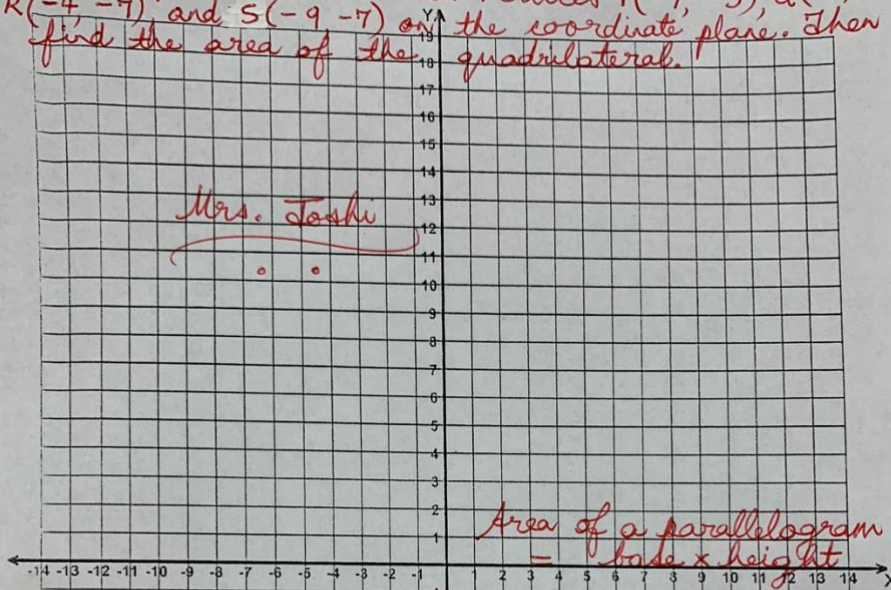 R(-4, -7) and S(-9 -7) on the coordinate plane. Then
find the area of the quadrilateral.
Y
19
18
17
16
15
14
13
Mrs. Joshi
12
11
10
9
8
7
6
5
4
3
2
Area of a parallelogram
1
= base × height
-14 -13 -12 -11 -10 -9 -8 -7 -6 -5 -4 -3 -2 -1 1 2 3 4 5 6 7 8 9 10 11 12 13 14 X